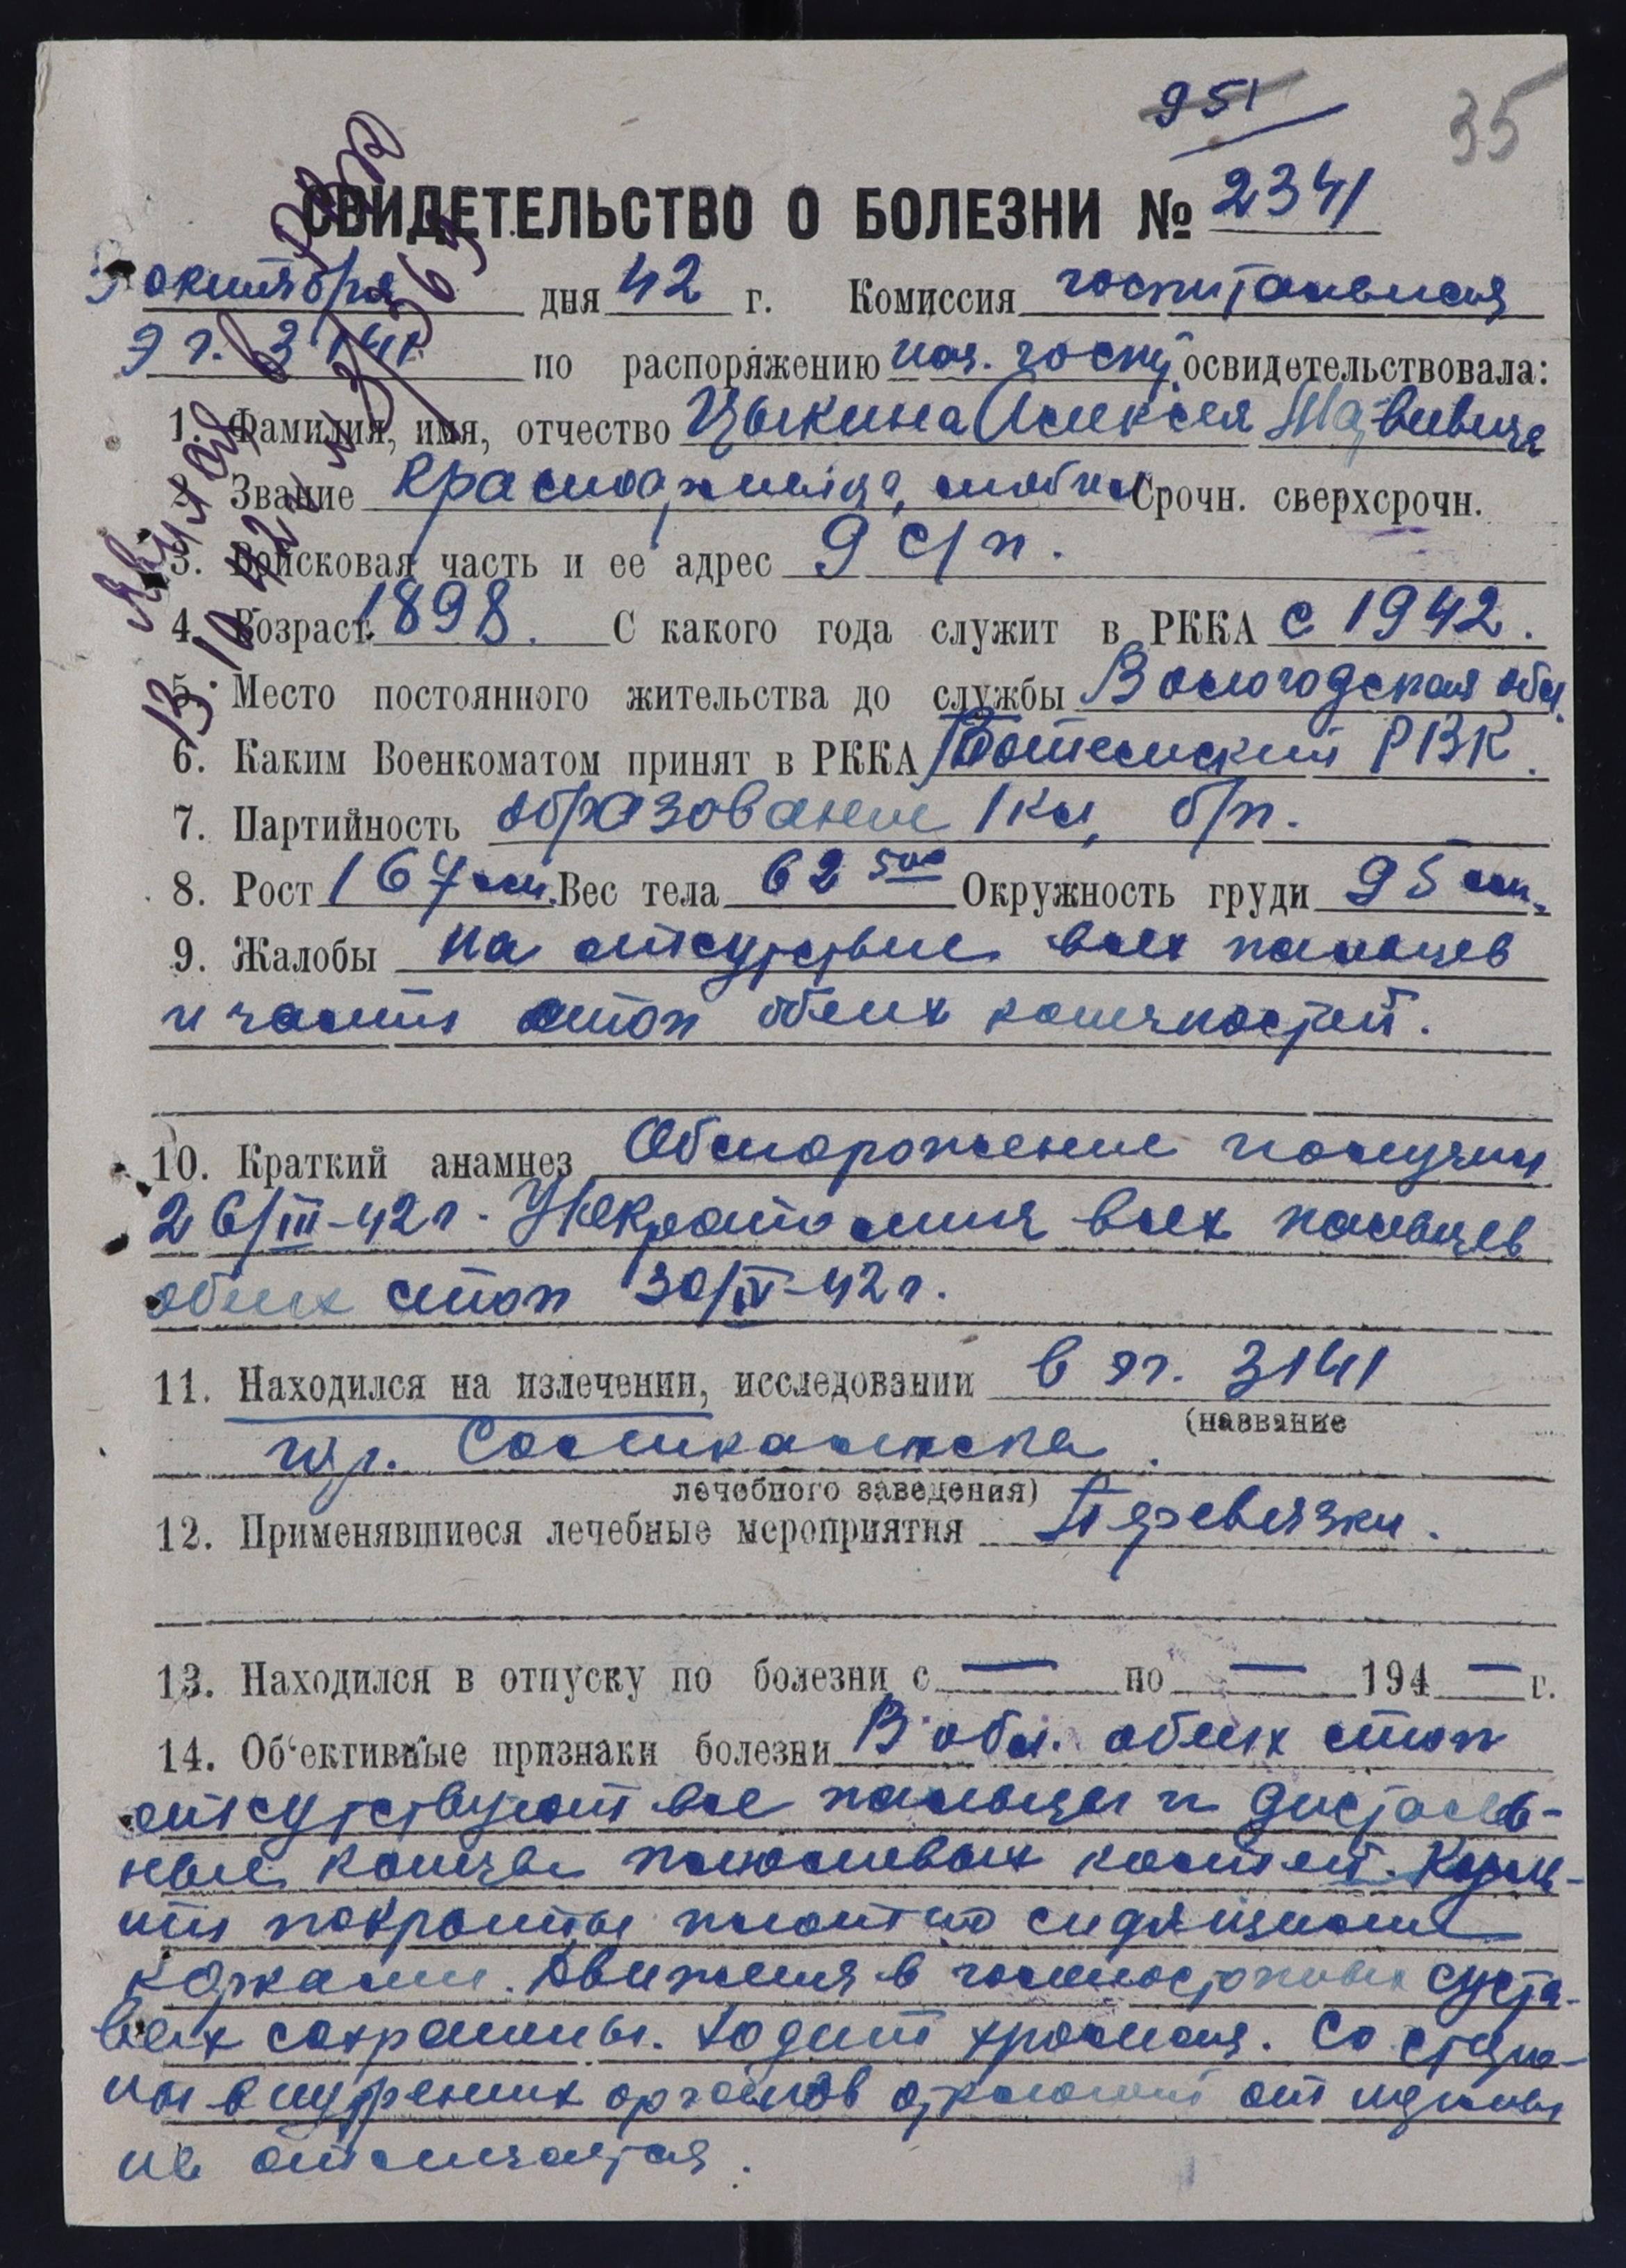 951
35
СВИДЕТЕЛЬСТВО О БОЛЕЗНИ № 2341
9 октября дня 42 г. Комиссия госпитальная
э г. 3141 по распоряжению нач. госп. освидетельствовала:
1. Фамилия, имя, отчество Цыкина Алексея
2. Звание Красноармеец, Срочн. сверхсрочн.
3. Войсковая часть и ее адрес 9 с/п.
4. Возраст 1898. С какого года служит в РККА с 1942.
5. Место постоянного жительства до службы Вологодская обл.
6. Каким Военкоматом принят в РККА РВК.
7. Партийность образование 1 кл, б/п.
8. Рост 167 см. Вес тела 62 500 Окружность груди 95 см.
9. Жалобы на отсутствие всех пальцев
и части стоп обеих конечностей.
10. Краткий анамнез Обморожение получил
26/III-42 г. Некротомия всех пальцев
обеих стоп 30/IV-42 г.
11. Находился на излечении, исследовании в эг. 3141
(название
гор. Соликамска.
лечебного заведения)
12. Применявшиеся лечебные мероприятия Перевязки.
13. Находился в отпуску по болезни с — по — 194 — г.
14. Об'ективные признаки болезни В обл. обеих стоп
отсутствуют все пальцы и дисталь-
ные концы плюсневых костей. Куль-
ти покрыты плотно сидящими
кожами. Движения в голеностопных суста-
вах сохранены. Ходит хромая. Со сторо-
ны внутренних органов отклонений от нормы
не отмечается.